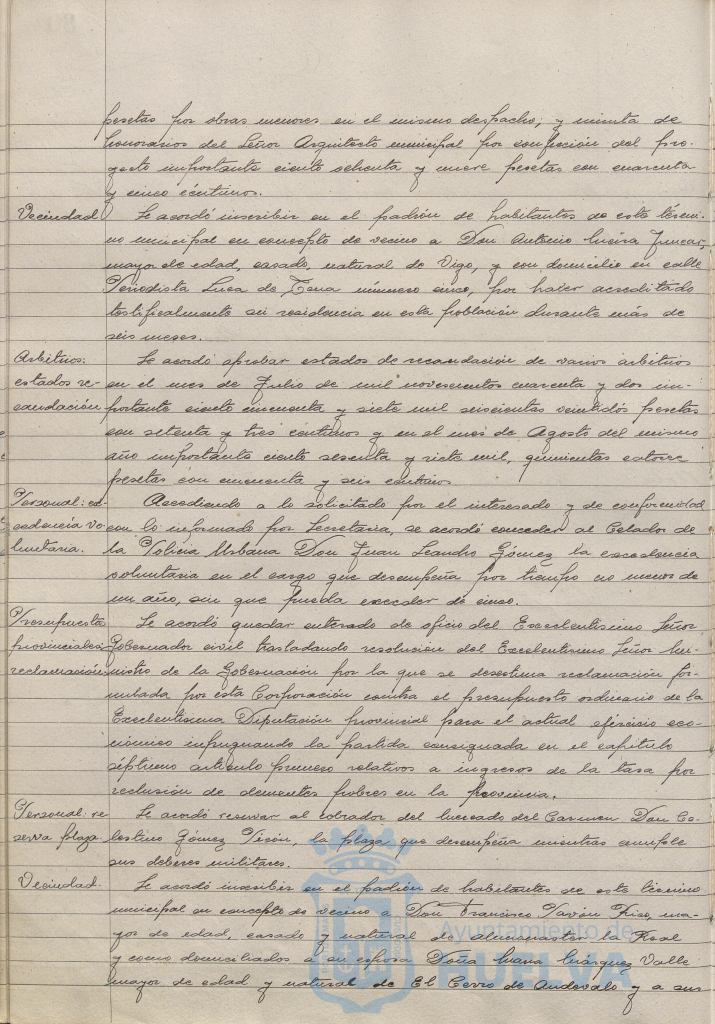 pesetas por obras menores en el mismo despacho; y minuta de
honorarios del Señor Arquitecto municipal por confección del pro-
yecto importante ciento ochenta y nueve pesetas con cuarenta
y cinco céntimos.
Vecindad Se acordó inscribir en el padrón de habitantes de este térmi-
no municipal en concepto de vecino a Don Antonio
mayor de edad, casado, natural de Vigo, y con domicilio en calle
Periodista Luca de Tena número cinco, por haber acreditado
testificalmente su residencia en esta población durante más de
seis meses.
Arbitrios: Se acordó aprobar estados de recaudación de varios arbitrios
estados re- en el mes de Julio de mil novecientos cuarenta y dos im-
caudación portante ciento cincuenta y siete mil seiscientas veintidós pesetas
con setenta y tres céntimos y en el mes de Agosto del mismo
año importante ciento sesenta y siete mil, quinientas catorce
pesetas con cincuenta y seis céntimos.
Personal: ex- Accediendo a lo solicitado por el interesado y de conformidad
cedencia vo- con lo informado por Secretaria, se acordó conceder al Celador de
luntaria. la Policia Urbana Don Juan Leandro Gómez la excedencia
voluntaria en el cargo que desempeña por tiempo no menos de
un año, sin que pueda exceder de cinco.
Presupuestos Se acordó quedar enterado de oficio del Excelentisimo Señor
provinciales: Gobernador civil trasladando resolución del Excelentisimo Señor Mi-
reclamación nistro de la Gobernación por la que se desestima reclamación for-
mulada por esta Corporación contra el presupuesto ordinario de la
Excelentisima Diputación provincial para el actual ejercicio eco-
nómico impugnando la partida consignada en el capitulo
séptimo articulo primero relativos a ingresos de la tasa por
reclusión de dementes pobres en la provincia.
Personal: re- Se acordó reservar al cobrador del mercado del Carmen Don Ce-
serva plaza. lestino Gómez, la plaza que desempeña mientras cumple
sus deberes militares.
Vecindad. Se acordó inscribir en el padrón de habitantes de este término
municipal en concepto de vecino a Don Francisco Pavón, ma-
yor de edad, casado y natural de Almonaster la Real
y como domiciliados a su esposa Doña Márquez Valle
mayor de edad y natural de El Cerro de Andevalo y a sus
Ayuntamiento de
HUELVA